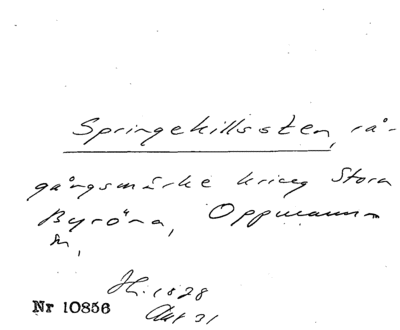 Springekillssten, rå-
gångsmärke kring Stora
Byröna, Oppmanna
sn,
Hi. 1828
Akt 31
Nr 10856